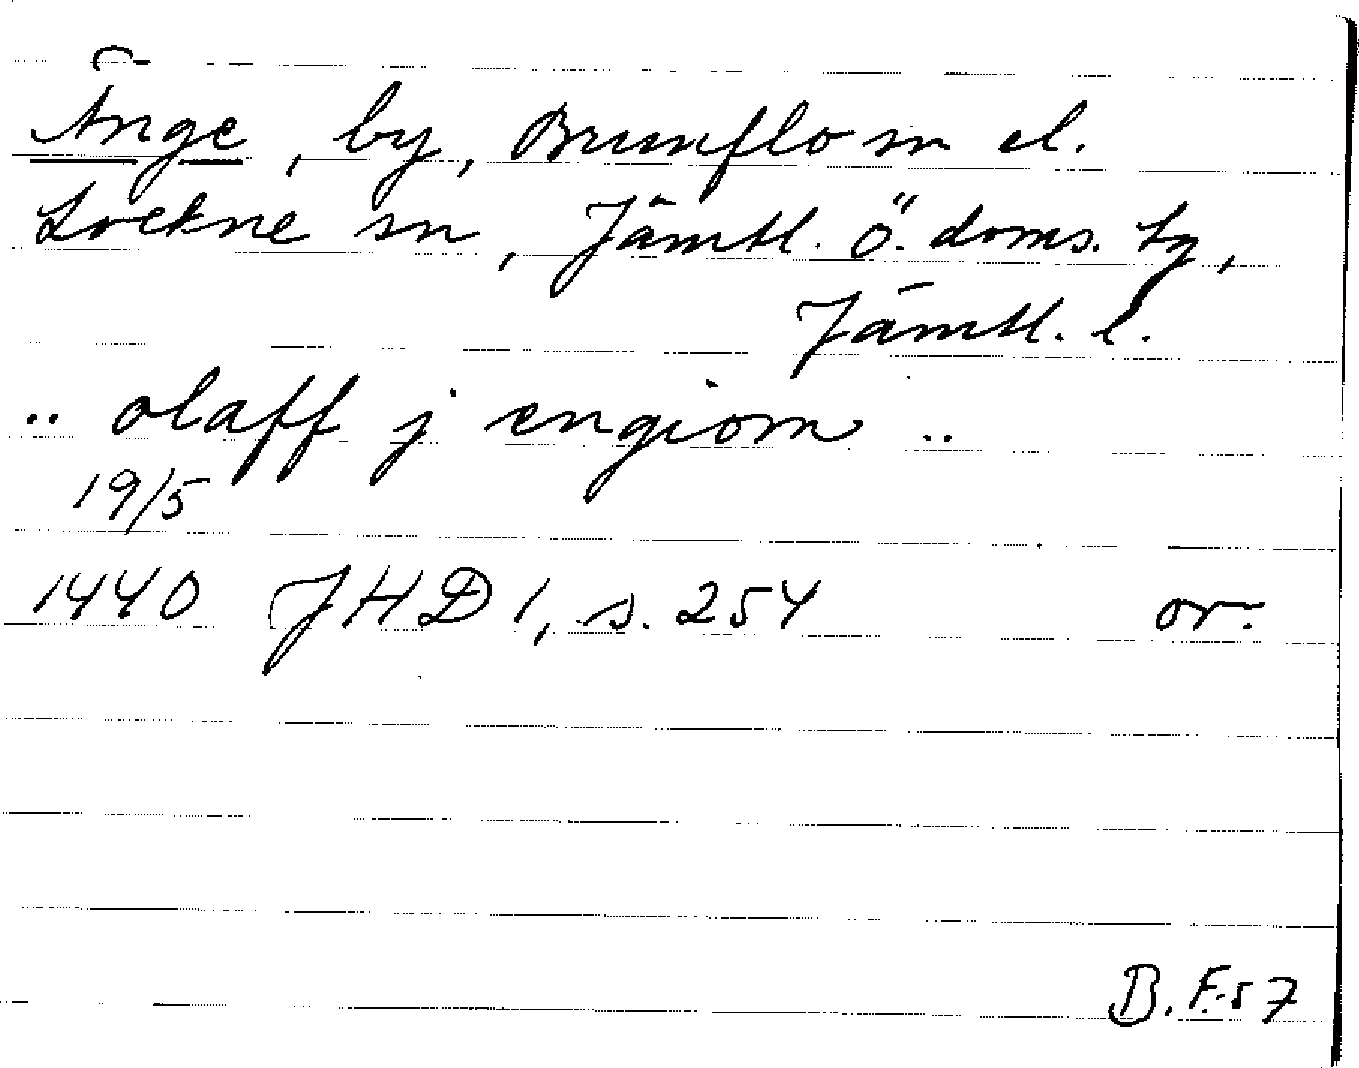 Änge, by, Brunflo sn el.
Lockne sn, Jämtl. ö. doms. tg,
Jämtl. l.
.. olaff j engiom ..
19/5
1440 JHD 1, s. 254 or.
B. F. 57